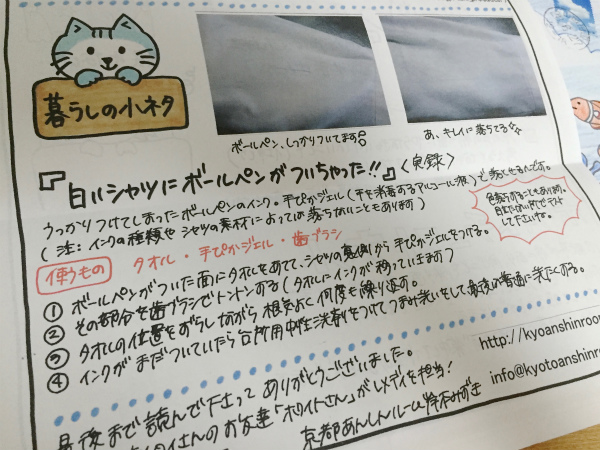 暮らしの小ネタ
ボールペン、しっかりついてます
あ、キレイに落ちてる☆
『白いシャツにボールペンがついちゃった!!』〈実録〉
うっかりつけてしまったボールペンのインク。手ぴかジェル(手を消毒するアルコール液)で落とせるんです。
(注:インクの種類やシャツの素材によっては落ちないこともあります)
色落ちすることもあります。
目立たない所でテスト
して下さいね。
使うもの
タオル・手ピカジェル・歯ブラシ
① ボールペンがついた面にタオルをあてて、シャツの裏側から手ぴかジェルをつける。
② その部分を歯ブラシでトントンする(タオルにインクが移っていきます)
③ タオルの位置をずらしながら根気よく何度も繰り返す。
④ インクがまだついていたら台所用中性洗剤をつけてつまみ洗いをして最後は普通に洗たくする。
http://kyoanshinroo
info@kyotoanshinr
最後まで読んで下さってありがとうございました。
さんのお友達「ホワイトさん」が
を担当!
京都あんしんルーム